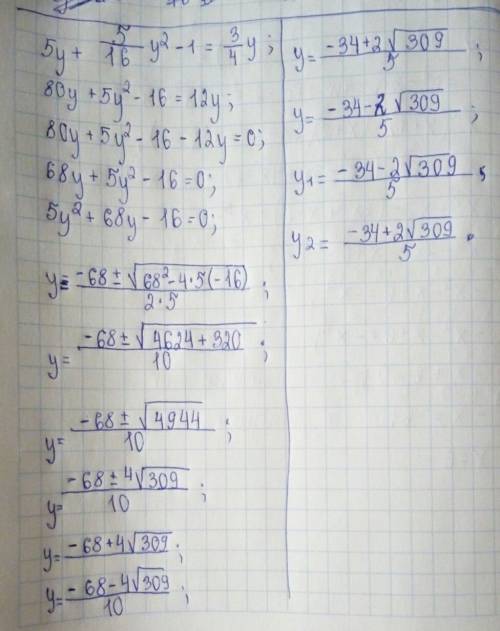 5y + 5/16 y² - 1 = 3/4 y;
80y + 5y² - 16 = 12y;
80y + 5y² - 16 - 12y = 0;
68y + 5y² - 16 = 0;
5y² + 68y - 16 = 0;
y = (-68 ± √(68² - 4·5(-16)))/(2·5);
y = (-68 ± √(4624 + 320))/10;
y = (-68 ± √4944)/10;
y = (-68 ± 4√309)/10;
y = -68 + 4√309;
y = (-68 - 4√309)/10;
y = (-34 + 2√309)/5;
y = (-34 - 2√309)/5;
y1 = (-34 - 2√309)/5;
y2 = (-34 + 2√309)/5.